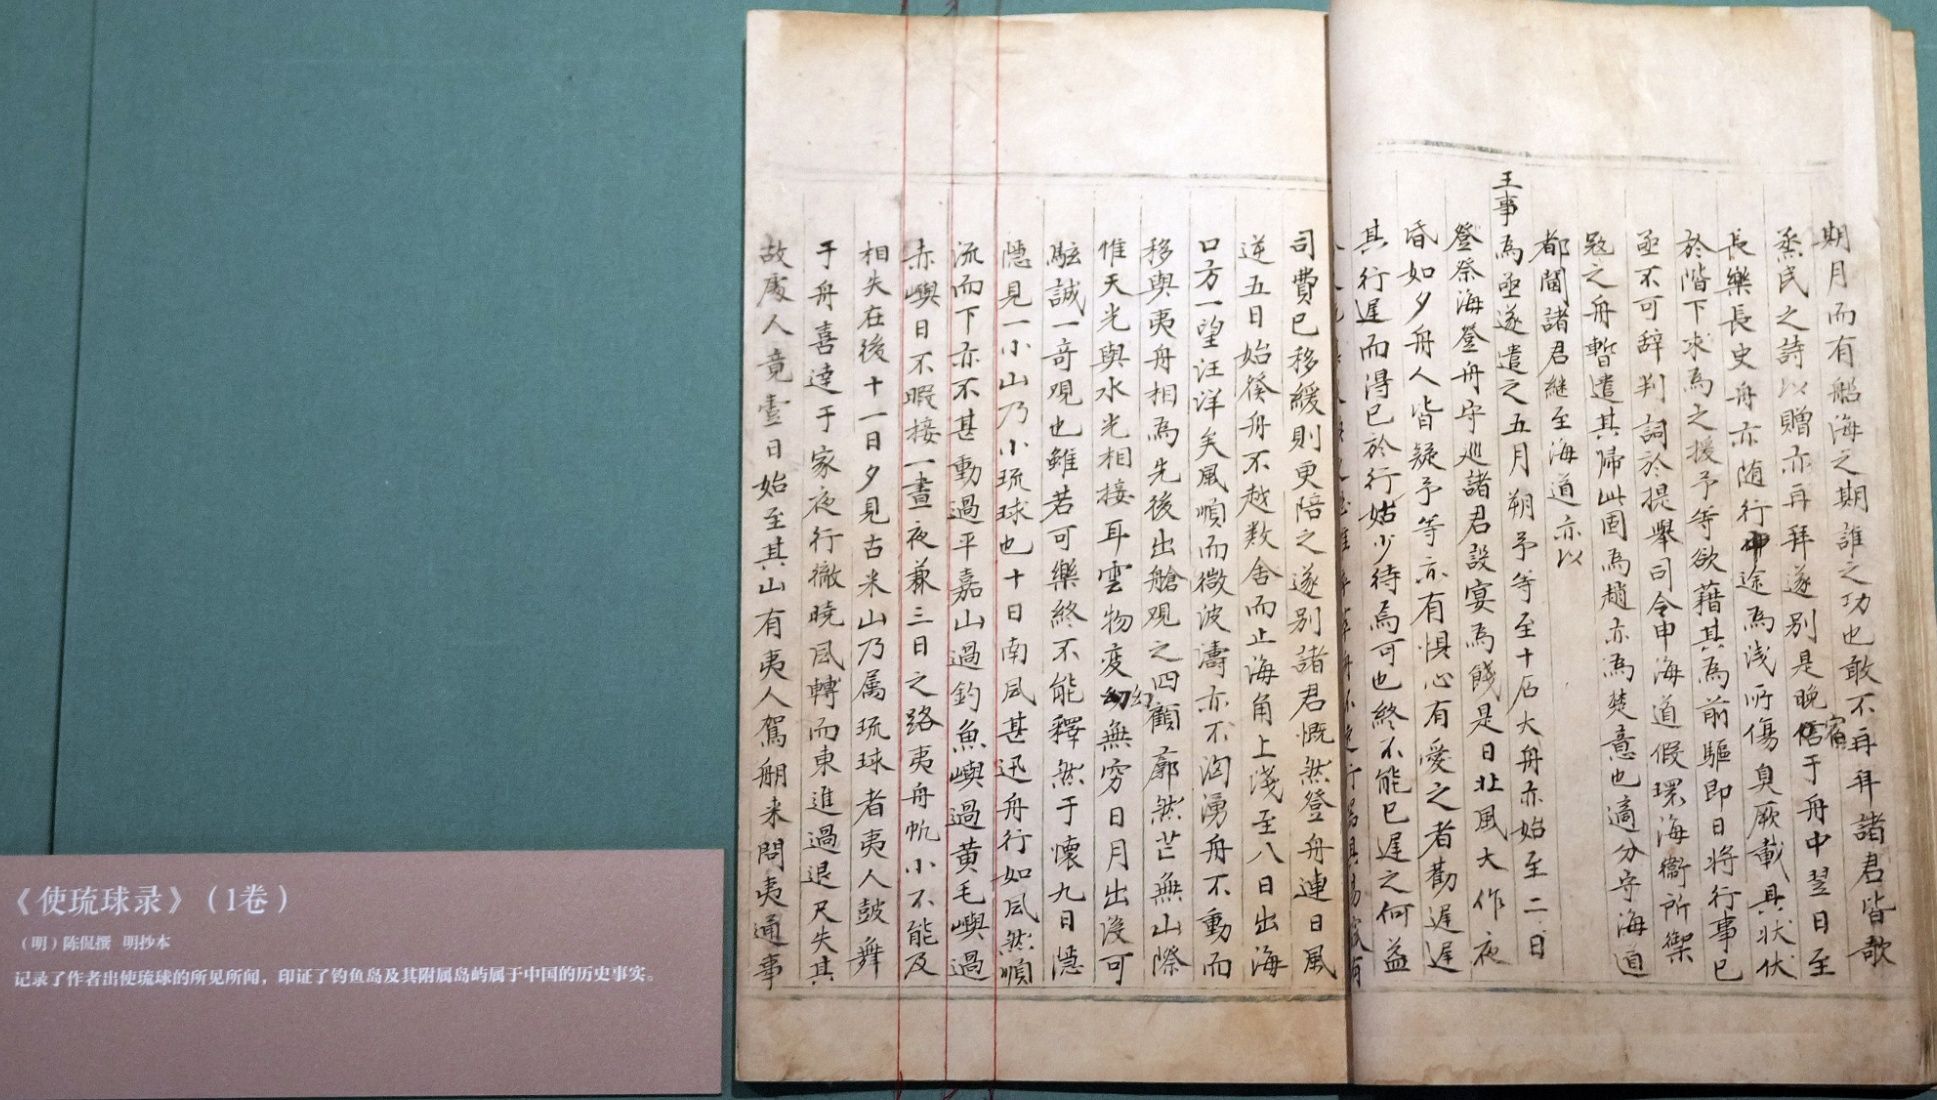 期月而有船海之期誰之功也敢不再拜諸君皆歌
烝民之詩以贈亦再拜遂別是晚宿于舟中翌日至
長樂長史舟亦随行中途為浅所傷臭厥載具狀伏
於階下求為之援予等欲藉其為前驅即日将行事已
亟不可辞判詞於提舉司令申海道假環海衞所禦
冦之舟暫遣其帰此固為趙亦為楚意也適分守海道
都閫諸君継至海道亦以
王事為亟遂遣之五月朔予等至十石大舟亦始至二日
登祭海登舟守巡諸君設宴為餞是日北風大作夜
昏如夕舟人皆疑予等亦有惧心有愛之者勸遲遲
其行遲而得已於行姑少待焉可也終不能已遲之何益
司費已移緩則更陪之遂別諸君慨然登舟連日風
逆五日始發舟不越数舍而止海角上淺至八日出海
口方一望汪洋矣風順而微波濤亦不洶湧舟不動而
移與夷舟相為先後出艙观之四顧廓然茫無山際
惟天光與水光相接耳雲物変幻無窮日月出沒可
駭誠一竒观也雖若可樂終不能釋然于懷九日隱
隱見一小山乃小琉球也十日南風甚迅舟行如風然順
流而下亦不甚動過平嘉山過釣魚嶼過黄毛嶼過
赤嶼日不暇接一晝夜兼三日之路夷舟帆小不能及
相失在後十一日夕見古米山乃属琉球者夷人鼓舞
于舟喜達于家夜行徹曉風轉而東進過退尺失其
故處人竟壹日始至其山有夷人駕舡来問夷通事
《使琉球录》（1卷）
（明）陈侃撰 明抄本
记录了作者出使琉球的所见所闻，印证了钓鱼岛及其附属岛屿属于中国的历史事实。